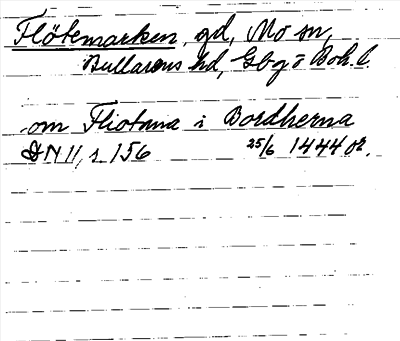 Flötemarken, gd, Mo sn,
Bullarens hd, Gbg o Boh. l.
om Fliotana i Bordherna
DN II, s. 156 25/6 1444 or.